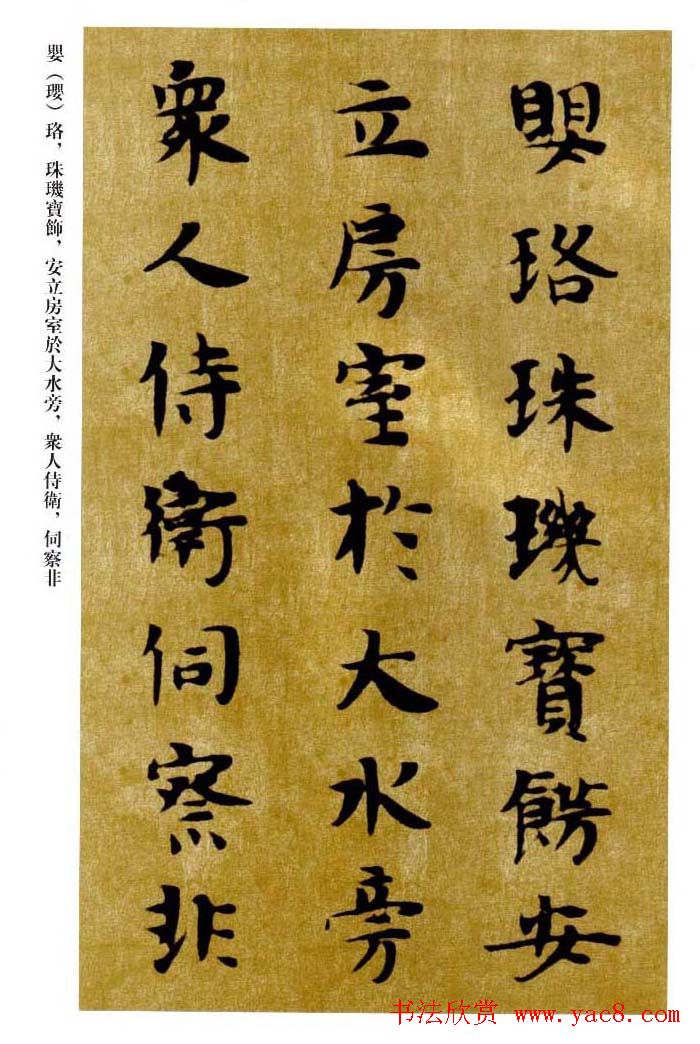 嬰珞珠璣寶飾安
立房室於大水旁
衆人侍衛伺察非
嬰（瓔）珞，珠璣寶飾，安立房室於大水旁，衆人侍衛，伺察非
书法欣赏 www.yac8.com